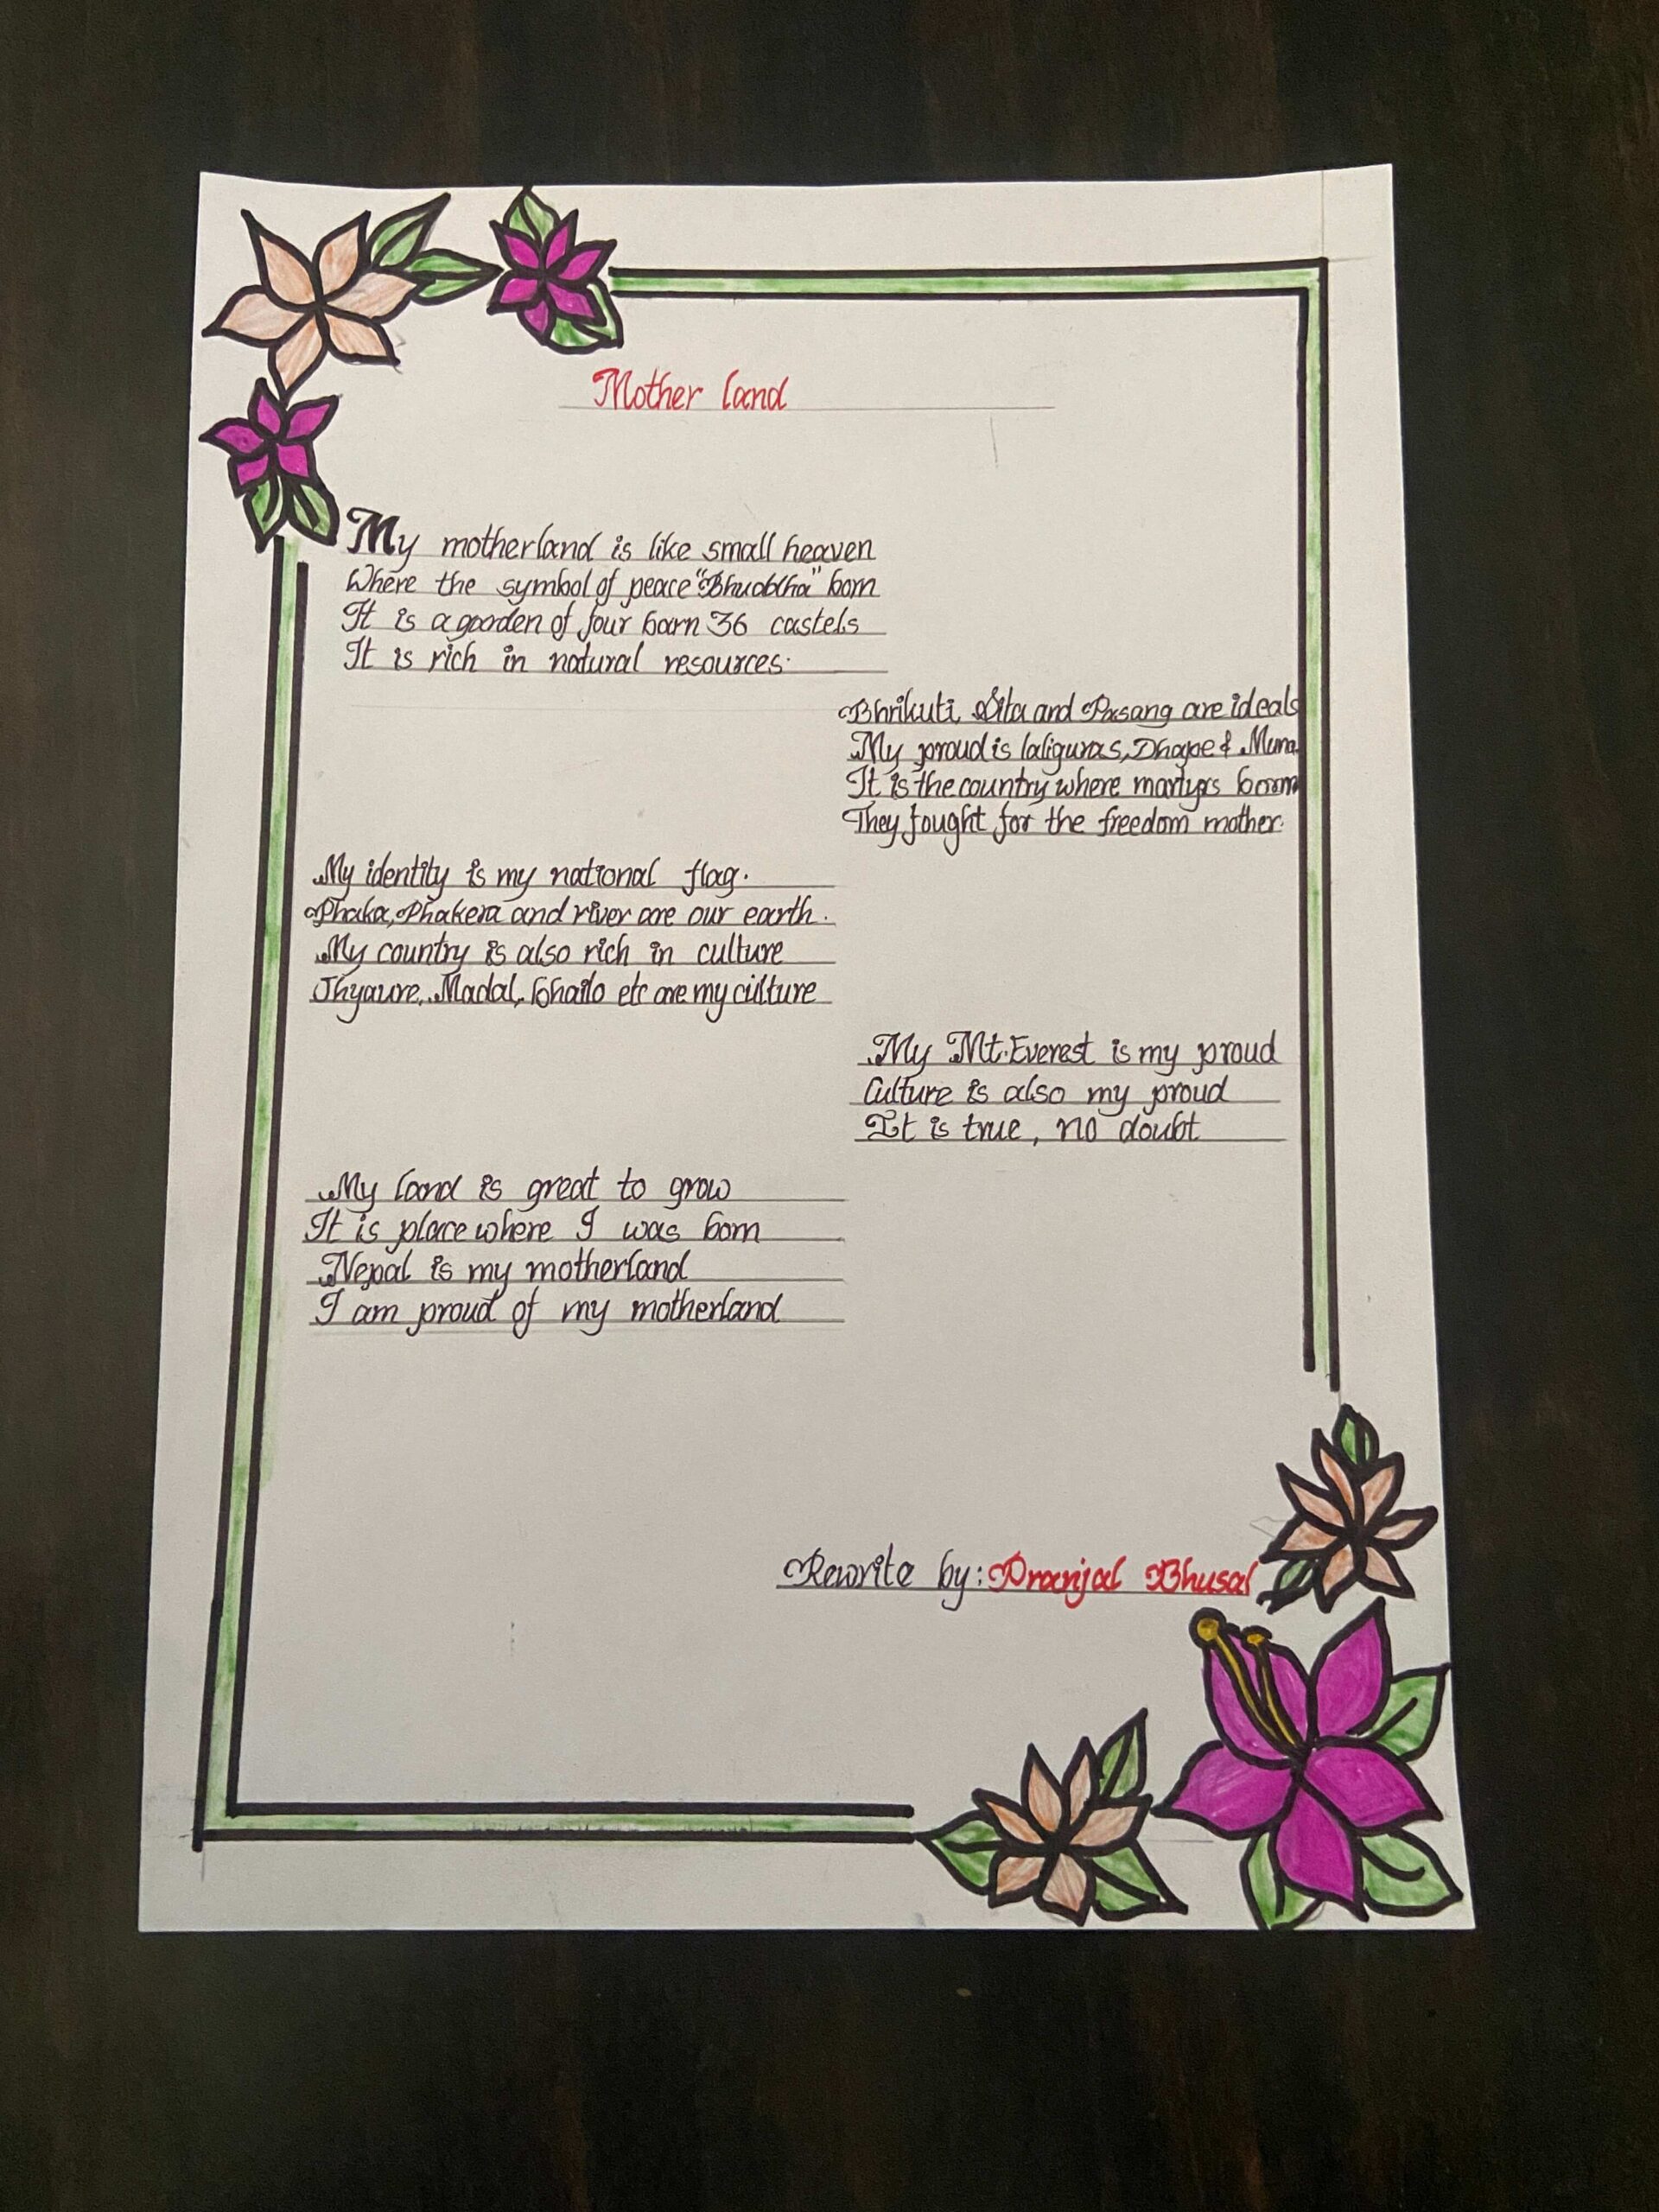 Mother land
My motherland is like small heaven
Where the symbol of peace "Bhuddha" born
It is a gaorden of four barn 36 castels
It is rich in natural resources.
Bhrikuti, Sita and Pasang are ideals
My proud is laliguras, Dhape & Muna
It is the country where martyrs born
They fought for the freedom mother.
My identity is my national flag.
Phaka, Phakera and river are our earth.
My country is also rich in culture
Jhyaure, Madal, Ghailo etc are my culture
My Mt. Everest is my proud
Culture is also my proud
It is true, no doubt
My land is great to grow
It is place where I was born
Nepal is my motherland
I am proud of my motherland
Rewrite by: Pranjal Bhusal